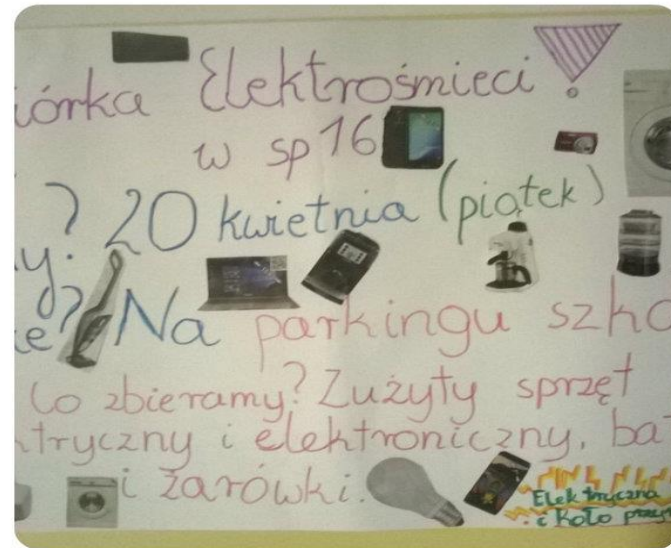 iórka Elektrośmieci!
w sp 16
y? 20 kwietnia (piątek)
ie? Na parkingu szko
Co zbieramy? Zużyty sprzęt
tryczny i elektroniczny, ba
i żarówki.
Elektryczna
i Koło